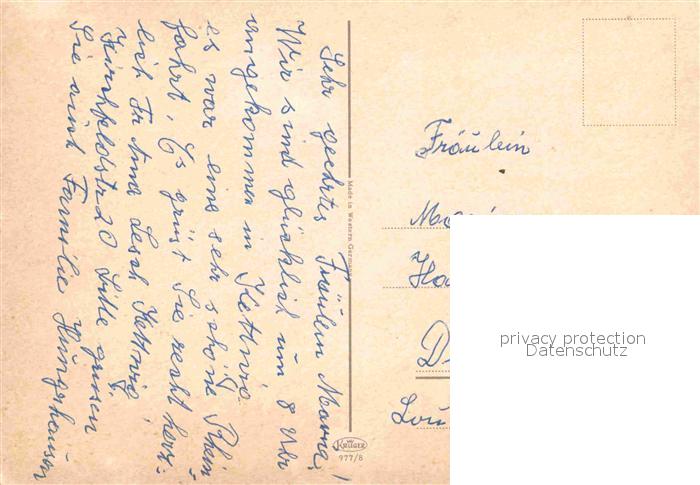 Sehr geehrtes Fräulein Marna!
Wir sind glücklich um 8 Uhr
angekommen in Kettwig.
es war eine sehr schöne Rhein
fahrt, Es grüst Sie recht herz-
lich Fr Anna Lesch Kettwig
Kirchfeldstr 20 Bitte grüsen
Sie auch Familie Hüngshausen
Made in Western Germany
KRÜGER
977/8
Fräulein
privacy protection
Datenschutz